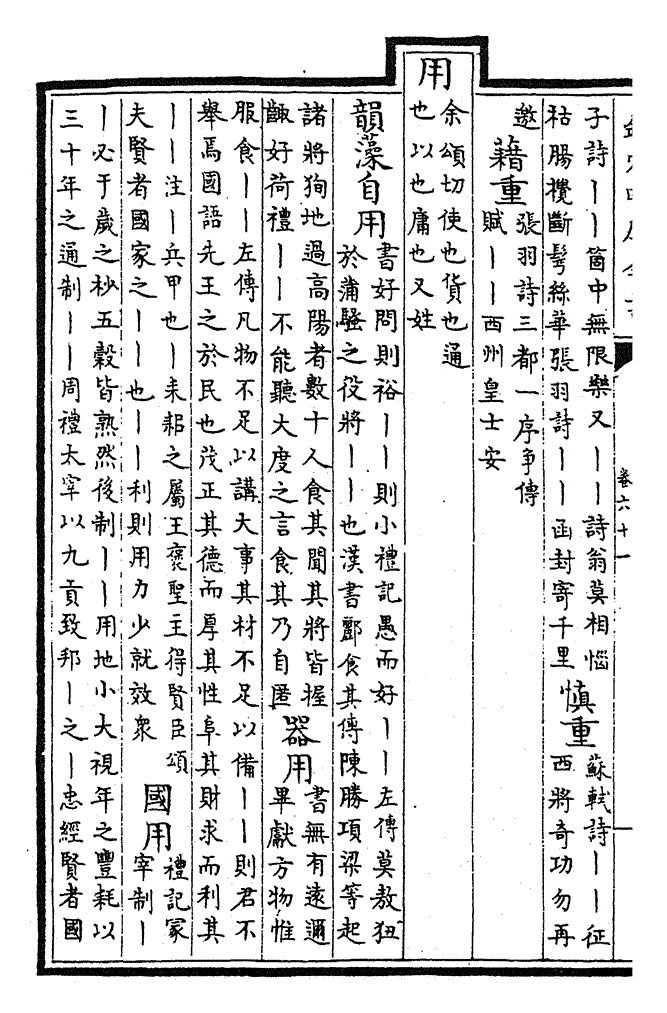 卷六十一
子詩丨丨箇中無限樂又丨丨詩翁莫相惱
枯腸攪斷髩絲華張羽詩丨丨函封寄千里
慎重
蘇軾詩丨丨征
西將奇功勿再
邀
藉重
張羽詩三都一序爭傳
賦丨丨西州皇士安
用
余頌切使也貨也通
也以也庸也又姓
韻藻自用
書好問則裕丨丨則小禮記愚而好丨丨左傳莫敖狃
於蒲騷之役將丨丨也漢書酈食其傳陳勝項梁等起
諸將狥地過高陽者數十人食其聞其將皆握
齱好荷禮丨丨不能聽大度之言食其乃自匿
器用
書無有遠邇
畢獻方物惟
服食丨丨左傳凡物不足以講大事其材不足以備丨丨則君不
舉焉國語先王之於民也茂正其德而厚其性阜其財求而利其
丨丨注丨兵甲也丨耒耜之屬王褒聖主得賢臣頌
夫賢者國家之丨丨也丨丨利則用力少就效衆
國用
禮記冢
宰制丨
丨必于歲之杪五穀皆熟然後制丨丨用地小大視年之豐耗以
三十年之通制丨丨周禮太宰以九貢致邦丨之丨忠經賢者國